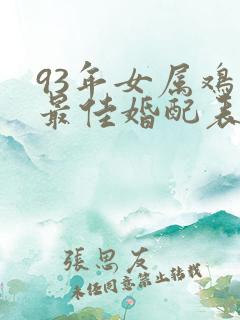 93年女属鸡
最佳婚配表
張思友
未经同意禁止转载